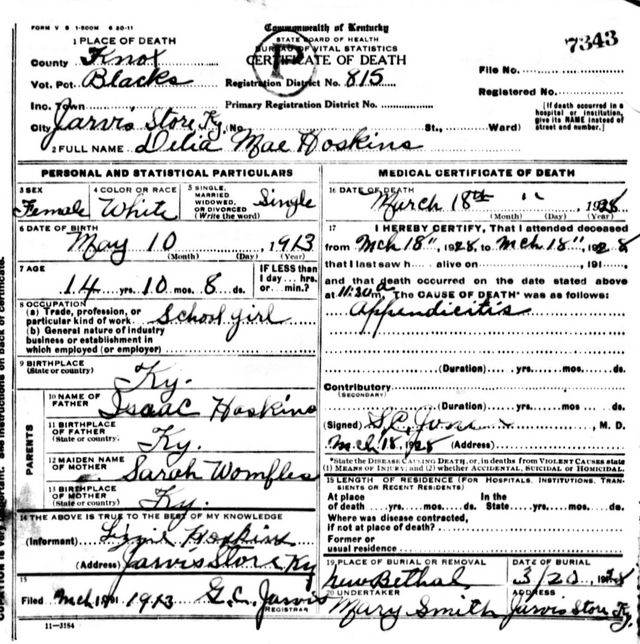 FORM V S 1-500M 6 20-11
Commonwealth of Kentucky
STATE BOARD OF HEALTH
BUREAU OF VITAL STATISTICS
CERTIFICATE OF DEATH
P
7343
1 PLACE OF DEATH
County Knox
Vot. Pct. Blacks
Inc. Town
City Jarvis Store, Ky. No. St., Ward)
Registration District No. 815
Primary Registration District No.
File No.
Registered No.
(If death occurred in a hospital or institution, give its NAME instead of street and number.)
2 FULL NAME Delia Mae Hoskins
PERSONAL AND STATISTICAL PARTICULARS
3 SEX Female
4 COLOR OR RACE White
5 SINGLE, MARRIED WIDOWED, OR DIVORCED (Write the word) Single
6 DATE OF BIRTH
May 10, 1913
(Month) (Day) (Year)
7 AGE
14 yrs. 10 mos. 8 ds.
IF LESS than 1 day... hrs. or min.?
8 OCCUPATION
(a) Trade, profession, or particular kind of work School girl
(b) General nature of industry
business or establishment in
which employed (or employer)
9 BIRTHPLACE
(State or country) Ky.
PARENTS
10 NAME OF FATHER Isaac Hoskins
11 BIRTHPLACE OF FATHER
(State or country) Ky.
12 MAIDEN NAME OF MOTHER Sarah Womfles
13 BIRTHPLACE OF MOTHER
(State or country) Ky.
14 THE ABOVE IS TRUE TO THE BEST OF MY KNOWLEDGE
(Informant) Hoskins
(Address) Jarvis Store Ky
15
Filed Mch 1913 G.C. Jarvis
REGISTRAR
11-3184
MEDICAL CERTIFICATE OF DEATH
16 DATE OF DEATH
March 18th 1928
(Month) (Day) (Year)
17 I HEREBY CERTIFY, That I attended deceased
from Mch 18", 1928, to Mch 18", 1928
that I last saw h alive on, 191,
and that death occurred on the date stated above
at 11:30 m. The CAUSE OF DEATH* was as follows:
Appendicitis
(Duration) yrs. mos. ds.
Contributory
(SECONDARY)
(Duration) yrs. mos. ds.
(Signed) M. D.
Mch 18, 1928 (Address)
*State the DISEASE CAUSING DEATH, or, in deaths from VIOLENT CAUSES state
(1) MEANS OF INJURY; and (2) whether ACCIDENTAL, SUICIDAL or HOMICIDAL.
18 LENGTH OF RESIDENCE (FOR HOSPITALS, INSTITUTIONS, TRANSIENTS OR RECENT RESIDENTS)
At place of death yrs. mos. ds. In the State yrs. mos. ds.
Where was disease contracted,
if not at place of death?
Former or
usual residence
19 PLACE OF BURIAL OR REMOVAL
New Bethal
DATE OF BURIAL
3/20 1928
20 UNDERTAKER
Mary Smith
ADDRESS
Jarvis Store, Ky.